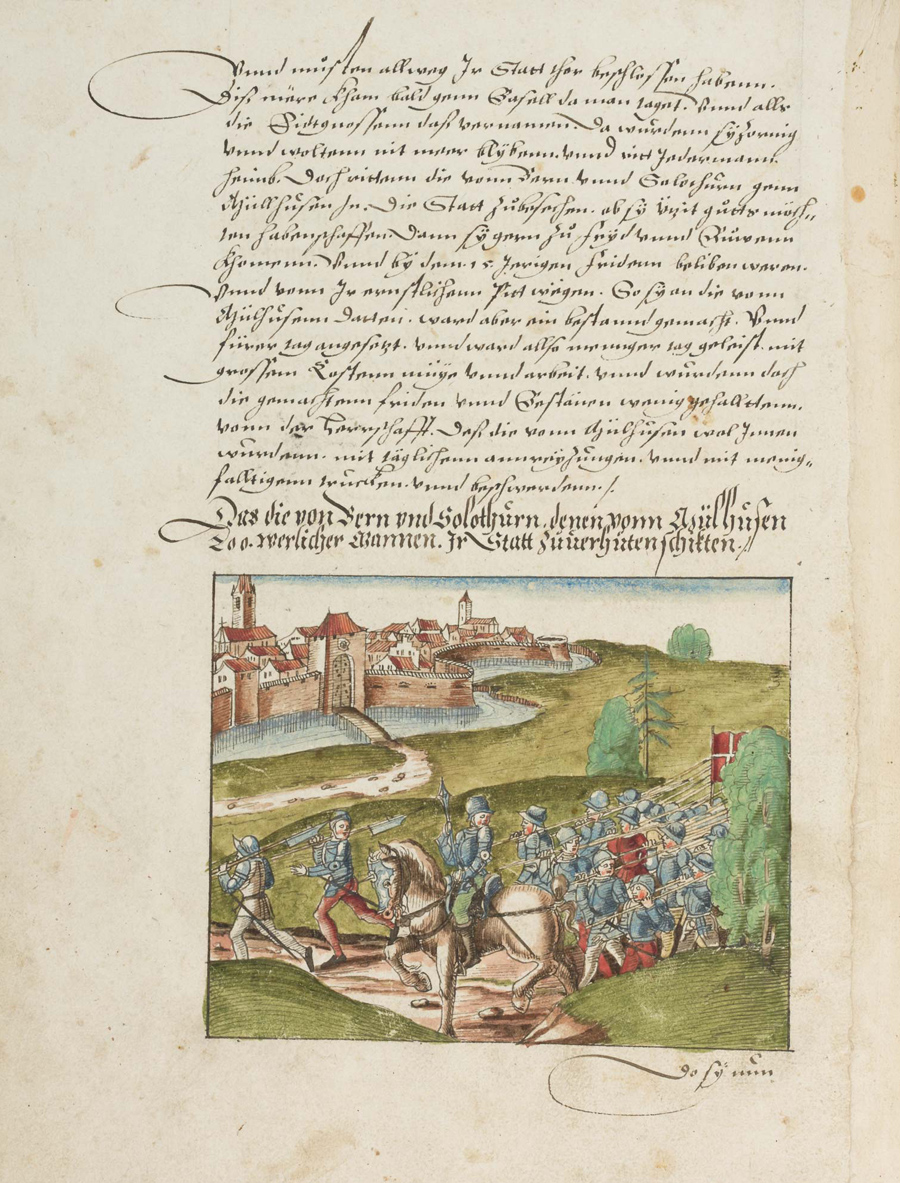 Vnnd musten allweg Ir Statt thor beschlossen habenn.
Diss märe kham bald genn Basell da man taget. Vnnd alls
die Eidtgnossenn das vernamen. Da wurdenn sy zornig
vnnd woltenn nit meer blybenn. vnnd ritt Jedermann
heimb. Doch rittenn die vonn Bern vnnd Solothurn genn
Mülhusen In. Die Statt zubesechen. ob sy ützit gutts möch-
ten habenn schaffen. Dann sy gern zu fryd vnnd Ruwenn
khomenn. Vnnd by dem. 15. Jerigen fridenn beliben weren.
Vnnd vonn Ir ernstlichenn Pitt wegen. So sy an die vonn
Mülhusenn darten. ward aber ein bestannd gemacht. Vnnd
fürer tag angesetzt. vnnd ward allso meniger tag geleist. mit
grossem Kostenn müye vnnd arbeit. vnnd wurdenn doch
die gemachtenn friden vnnd Bestänen wenig gehalltenn.
vonn der Herrschafft. Dess die vonn Mülhusen wol Innen
wurdenn. mit täglichenn annreytzungen. vnnd mit menig-
falltigenn trucken. vnnd beschwerdenn ./.
Das die von Bern vnd Solothurn. denen vonn Mülhusen
200. werlicher Mannen. Ir Statt zuuerhüten schikten ./
do sy nun